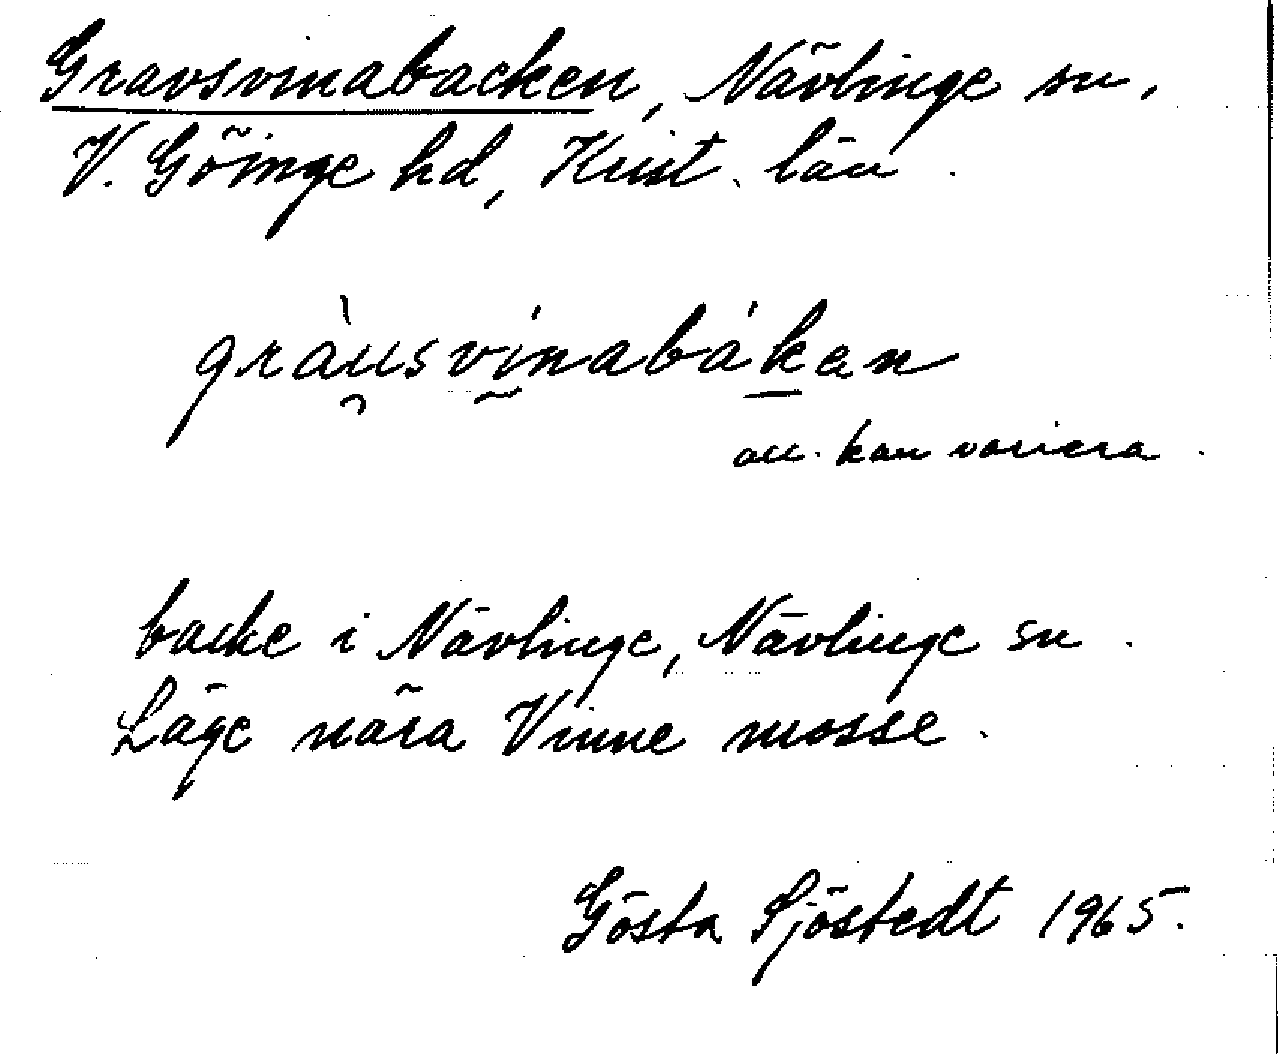 Gravsvinabacken, Nävlinge sn,
V. Göinge hd, Krist. län.
gràu̯svínabákan
acc. kan variera.
backe i Nävlinge, Nävlinge sn.
Läge nära Vinne mosse.
Gösta Sjöstedt 1965.